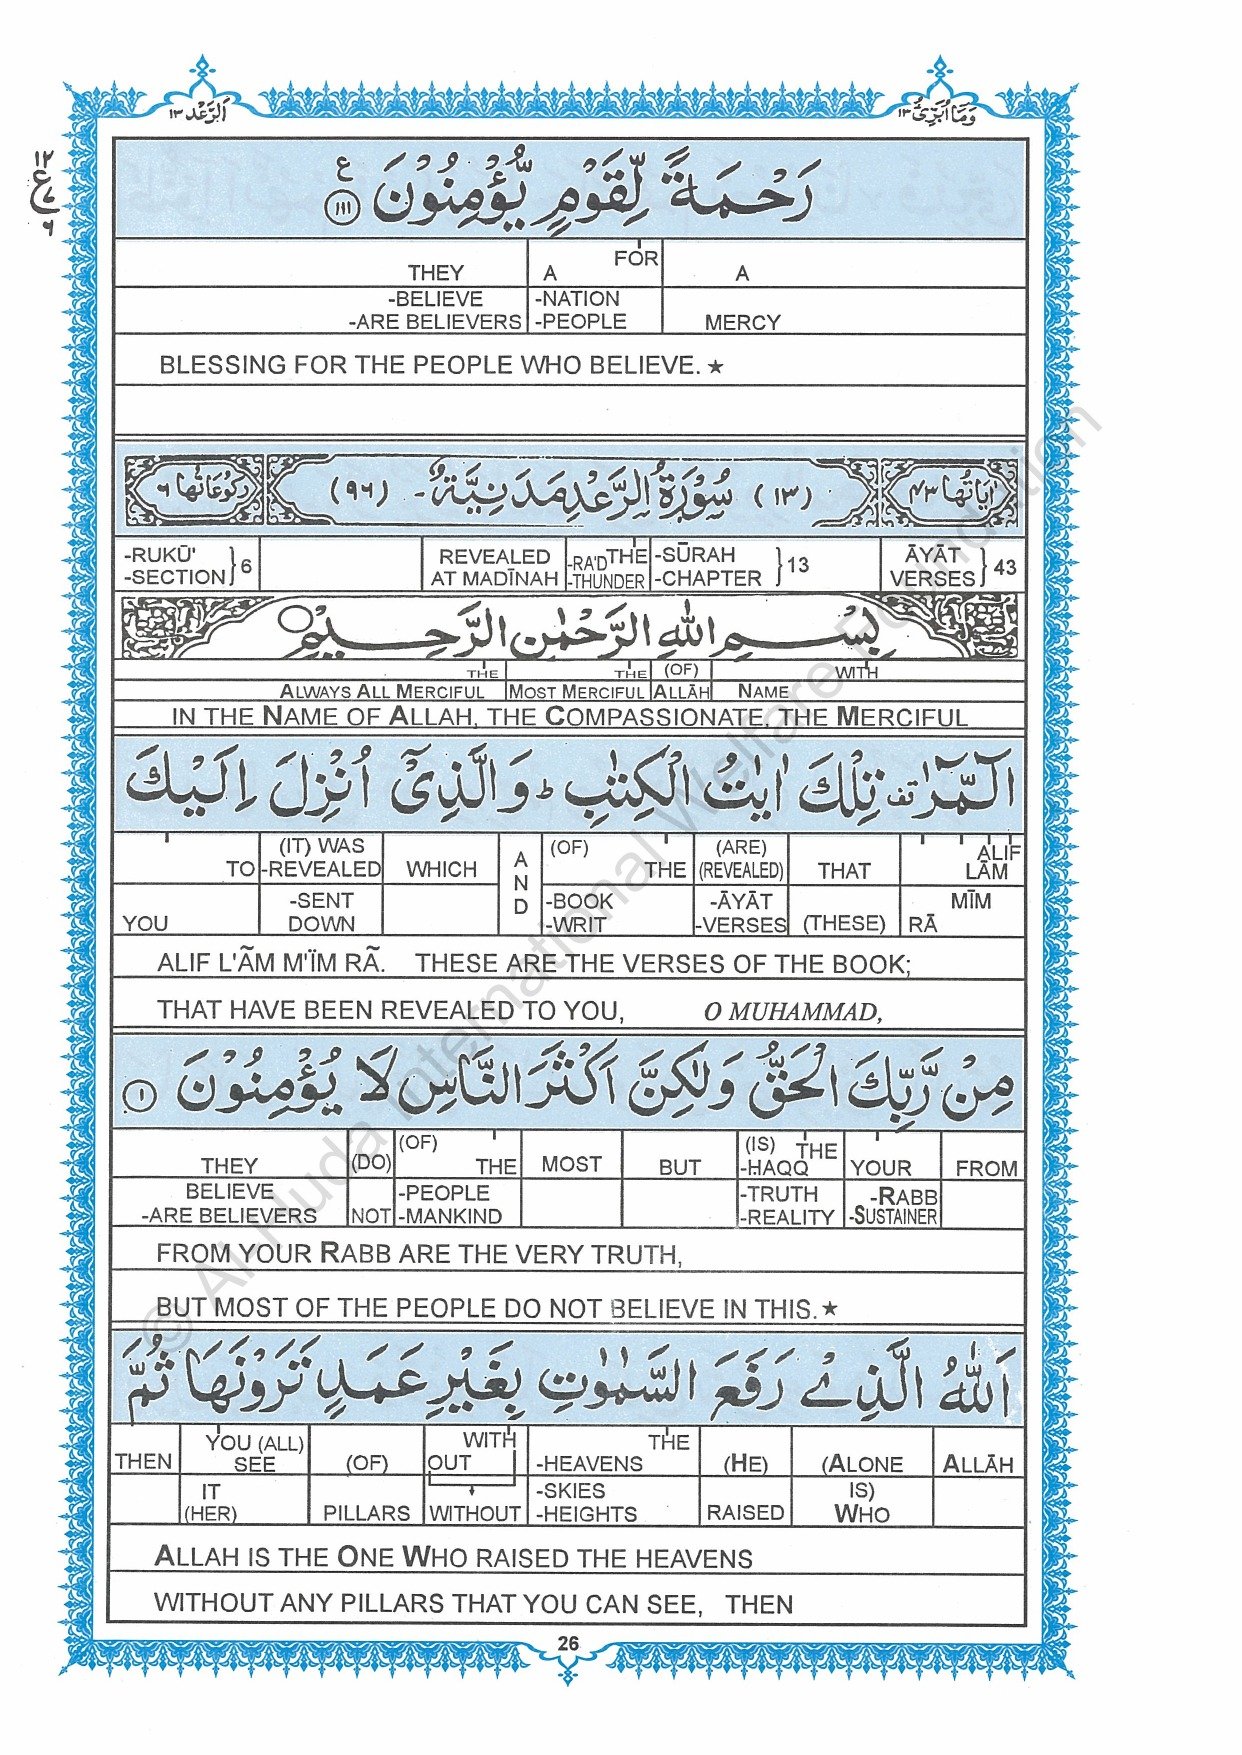 اَلرَّعْد ١٣
وَمَا اُبَرِّئُ ١٣
١٢
ع
٧
٦
رَحْمَةً لِّقَوْمٍ يُّؤْمِنُوْنَ ۝١١١ ع
THEY A FOR A
-BELIEVE -NATION
-ARE BELIEVERS -PEOPLE MERCY
BLESSING FOR THE PEOPLE WHO BELIEVE. ★
اٰيَاتُهَا ٤٣ (١٣) سُوْرَةُ الرَّعْدِ مَدَنِيَّةٌ - (٩٦) رُكُوْعَاتُهَا ٦
-RUKŪ' }6 REVEALED -RA'D THE -SŪRAH }13 ĀYĀT }43
-SECTION AT MADĪNAH -THUNDER -CHAPTER VERSES
بِسْمِ اللهِ الرَّحْمٰنِ الرَّحِيْمِ
THE THE (OF) WITH
ALWAYS ALL MERCIFUL MOST MERCIFUL ALLĀH NAME
IN THE NAME OF ALLAH, THE COMPASSIONATE, THE MERCIFUL
الٓمّٓرٰ تف تِلْكَ اٰيٰتُ الْكِتٰبِ ط وَالَّذِيْٓ اُنْزِلَ اِلَيْكَ
TO (IT) WAS -REVEALED WHICH AND (OF) THE (ARE) (REVEALED) THAT ALIF LĀM
YOU -SENT DOWN -BOOK -WRIT -ĀYĀT -VERSES (THESE) MĪM RĀ
ALIF L'ÃM M'ÏM RÃ. THESE ARE THE VERSES OF THE BOOK;
THAT HAVE BEEN REVEALED TO YOU, O MUHAMMAD,
مِنْ رَّبِّكَ الْحَقُّ وَلٰكِنَّ اَكْثَرَ النَّاسِ لَا يُؤْمِنُوْنَ ۝١
THEY (DO) (OF) THE MOST BUT (IS) THE -HAQQ YOUR FROM
BELIEVE -ARE BELIEVERS NOT -PEOPLE -MANKIND -TRUTH -REALITY -RABB -SUSTAINER
FROM YOUR RABB ARE THE VERY TRUTH,
BUT MOST OF THE PEOPLE DO NOT BELIEVE IN THIS. ★
اَللهُ الَّذِيْ رَفَعَ السَّمٰوٰتِ بِغَيْرِ عَمَدٍ تَرَوْنَهَا ثُمَّ
THEN YOU (ALL) SEE (OF) WITH OUT THE -HEAVENS (HE) (ALONE ALLĀH
IT (HER) PILLARS WITHOUT -SKIES -HEIGHTS RAISED IS) WHO
ALLAH IS THE ONE WHO RAISED THE HEAVENS
WITHOUT ANY PILLARS THAT YOU CAN SEE, THEN
26
© Al-Huda International Welfare Foundation